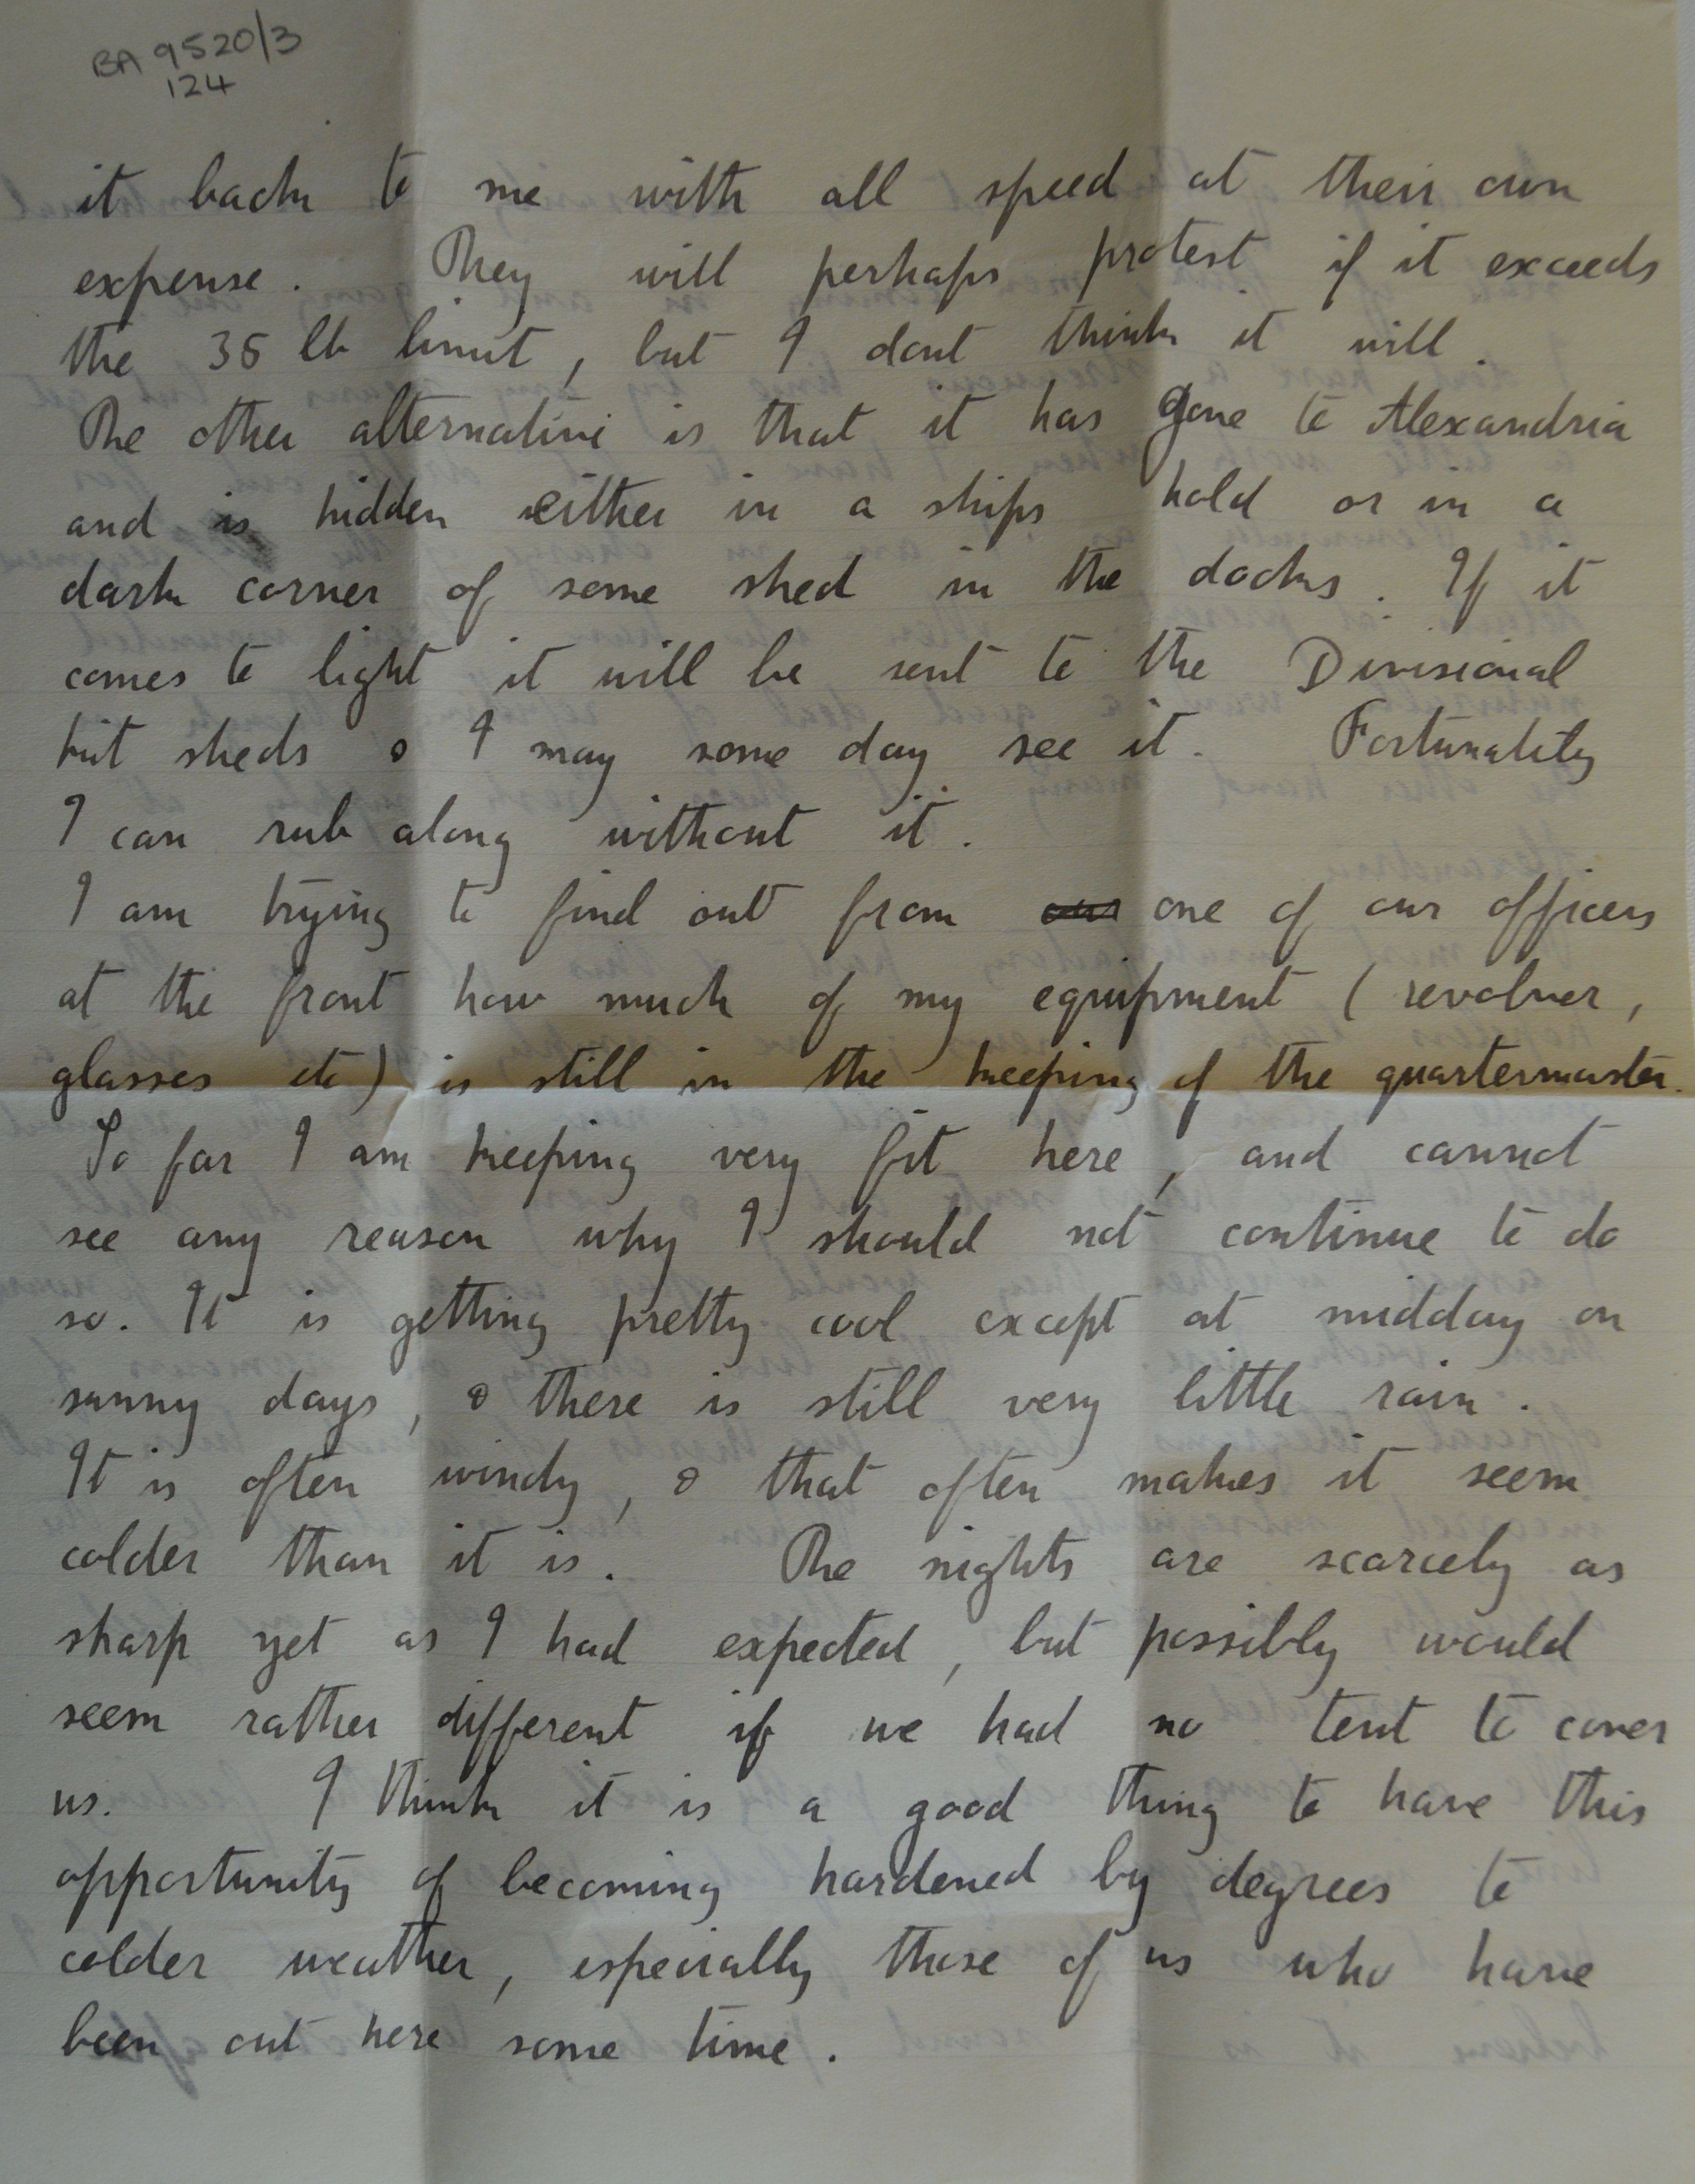 BA 9520/3
124
it back to me with all speed at their own
expense. They will perhaps protest if it exceeds
the 35 lb limit, but I dont think it will.
The other alternative is that it has gone to Alexandria
and is hidden either in a ships hold or in a
dark corner of some shed in the docks. If it
comes to light it will be sent to the Divisional
kit sheds & I may some day see it. Fortunately
I can rub along without it.
I am trying to find out from our one of our officers
at the front how much of my equipment (revolver,
glasses etc) is still in the keeping of the quartermaster.
So far I am keeping very fit here, and cannot
see any reason why I should not continue to do
so. It is getting pretty cool except at midday on
sunny days, & there is still very little rain.
It is often windy, & that often makes it seem
colder than it is. The nights are scarcely as
sharp yet as I had expected, but possibly would
seem rather different if we had no tent to cover
us. I think it is a good thing to have this
opportunity of becoming hardened by degrees to
colder weather, especially those of us who have
been out here some time.